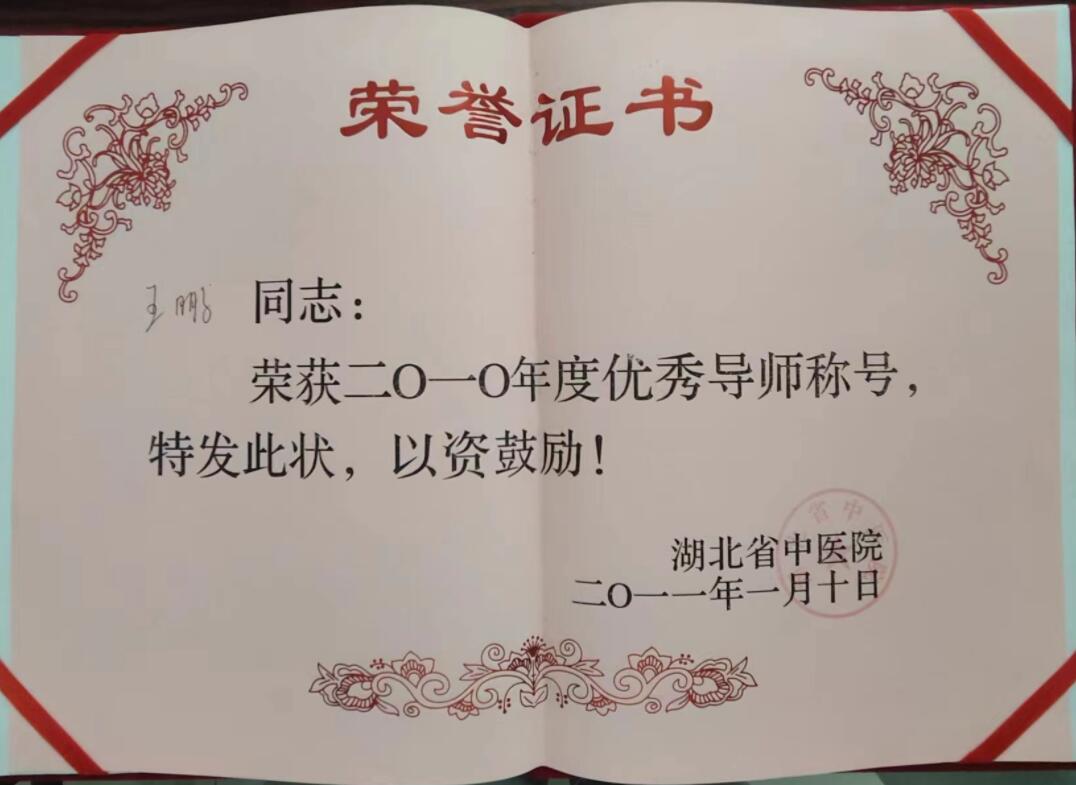 荣誉证书
王鹏 同志：
荣获二〇一〇年度优秀导师称号，
特发此状，以资鼓励！
湖北省中医院
二〇一一年一月十日
省中医